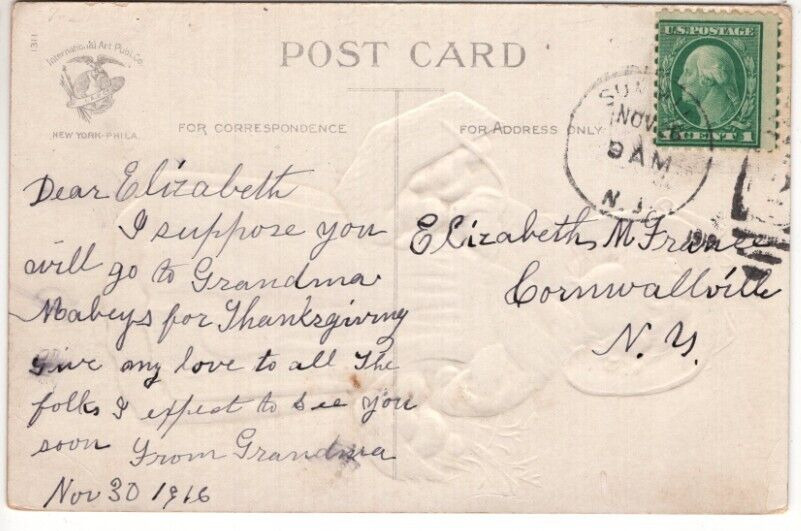 1311
International Art Publ. Co.
NEW YORK-PHILA.
POST CARD
FOR CORRESPONDENCE
FOR ADDRESS ONLY
U.S. POSTAGE
1 CENT 1
NOV
9 AM
N. J.
Dear Elizabeth
I suppose you
will go to Grandma
Mabeys for Thanksgiving
Give my love to all The
folks I expect to see you
soon From Grandma
Nov 30 1916
Elizabeth M France
Cornwallville
N. Y.